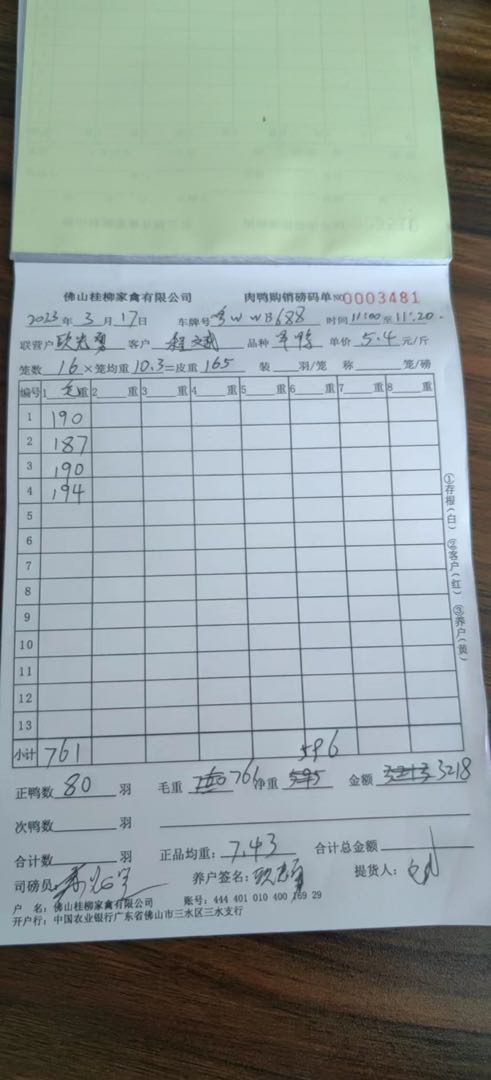 佛山桂柳家禽有限公司 肉鸭购销磅码单 NO 0003481
2023年3月17日 车牌号 粤W WB688 时间 11:00至11:20
联营户 欧志勇 客户 程 品种 单价 5.4 元/斤
笼数 16 ×笼均重 10.3 =皮重 165 装 羽/笼 称 笼/磅
编号 1 毛重 2 重 3 重 4 重 5 重 6 重 7 重 8 重
1 190
2 187
3 190
4 194
5
6
7
8
9
10
11
12
13
小计 761 596
正鸭数 80 羽 毛重 760 766 净重 595 金额 3213 3218
次鸭数 羽
合计数 羽 正品均重: 7.43 合计总金额
司磅员: 养户签名: 欧志勇 提货人:
户 名: 佛山桂柳家禽有限公司 账号: 444 401 010 400 169 29
开户行: 中国农业银行广东省佛山市三水区三水支行
①存根(白) ②客户(红) ③养户(黄)